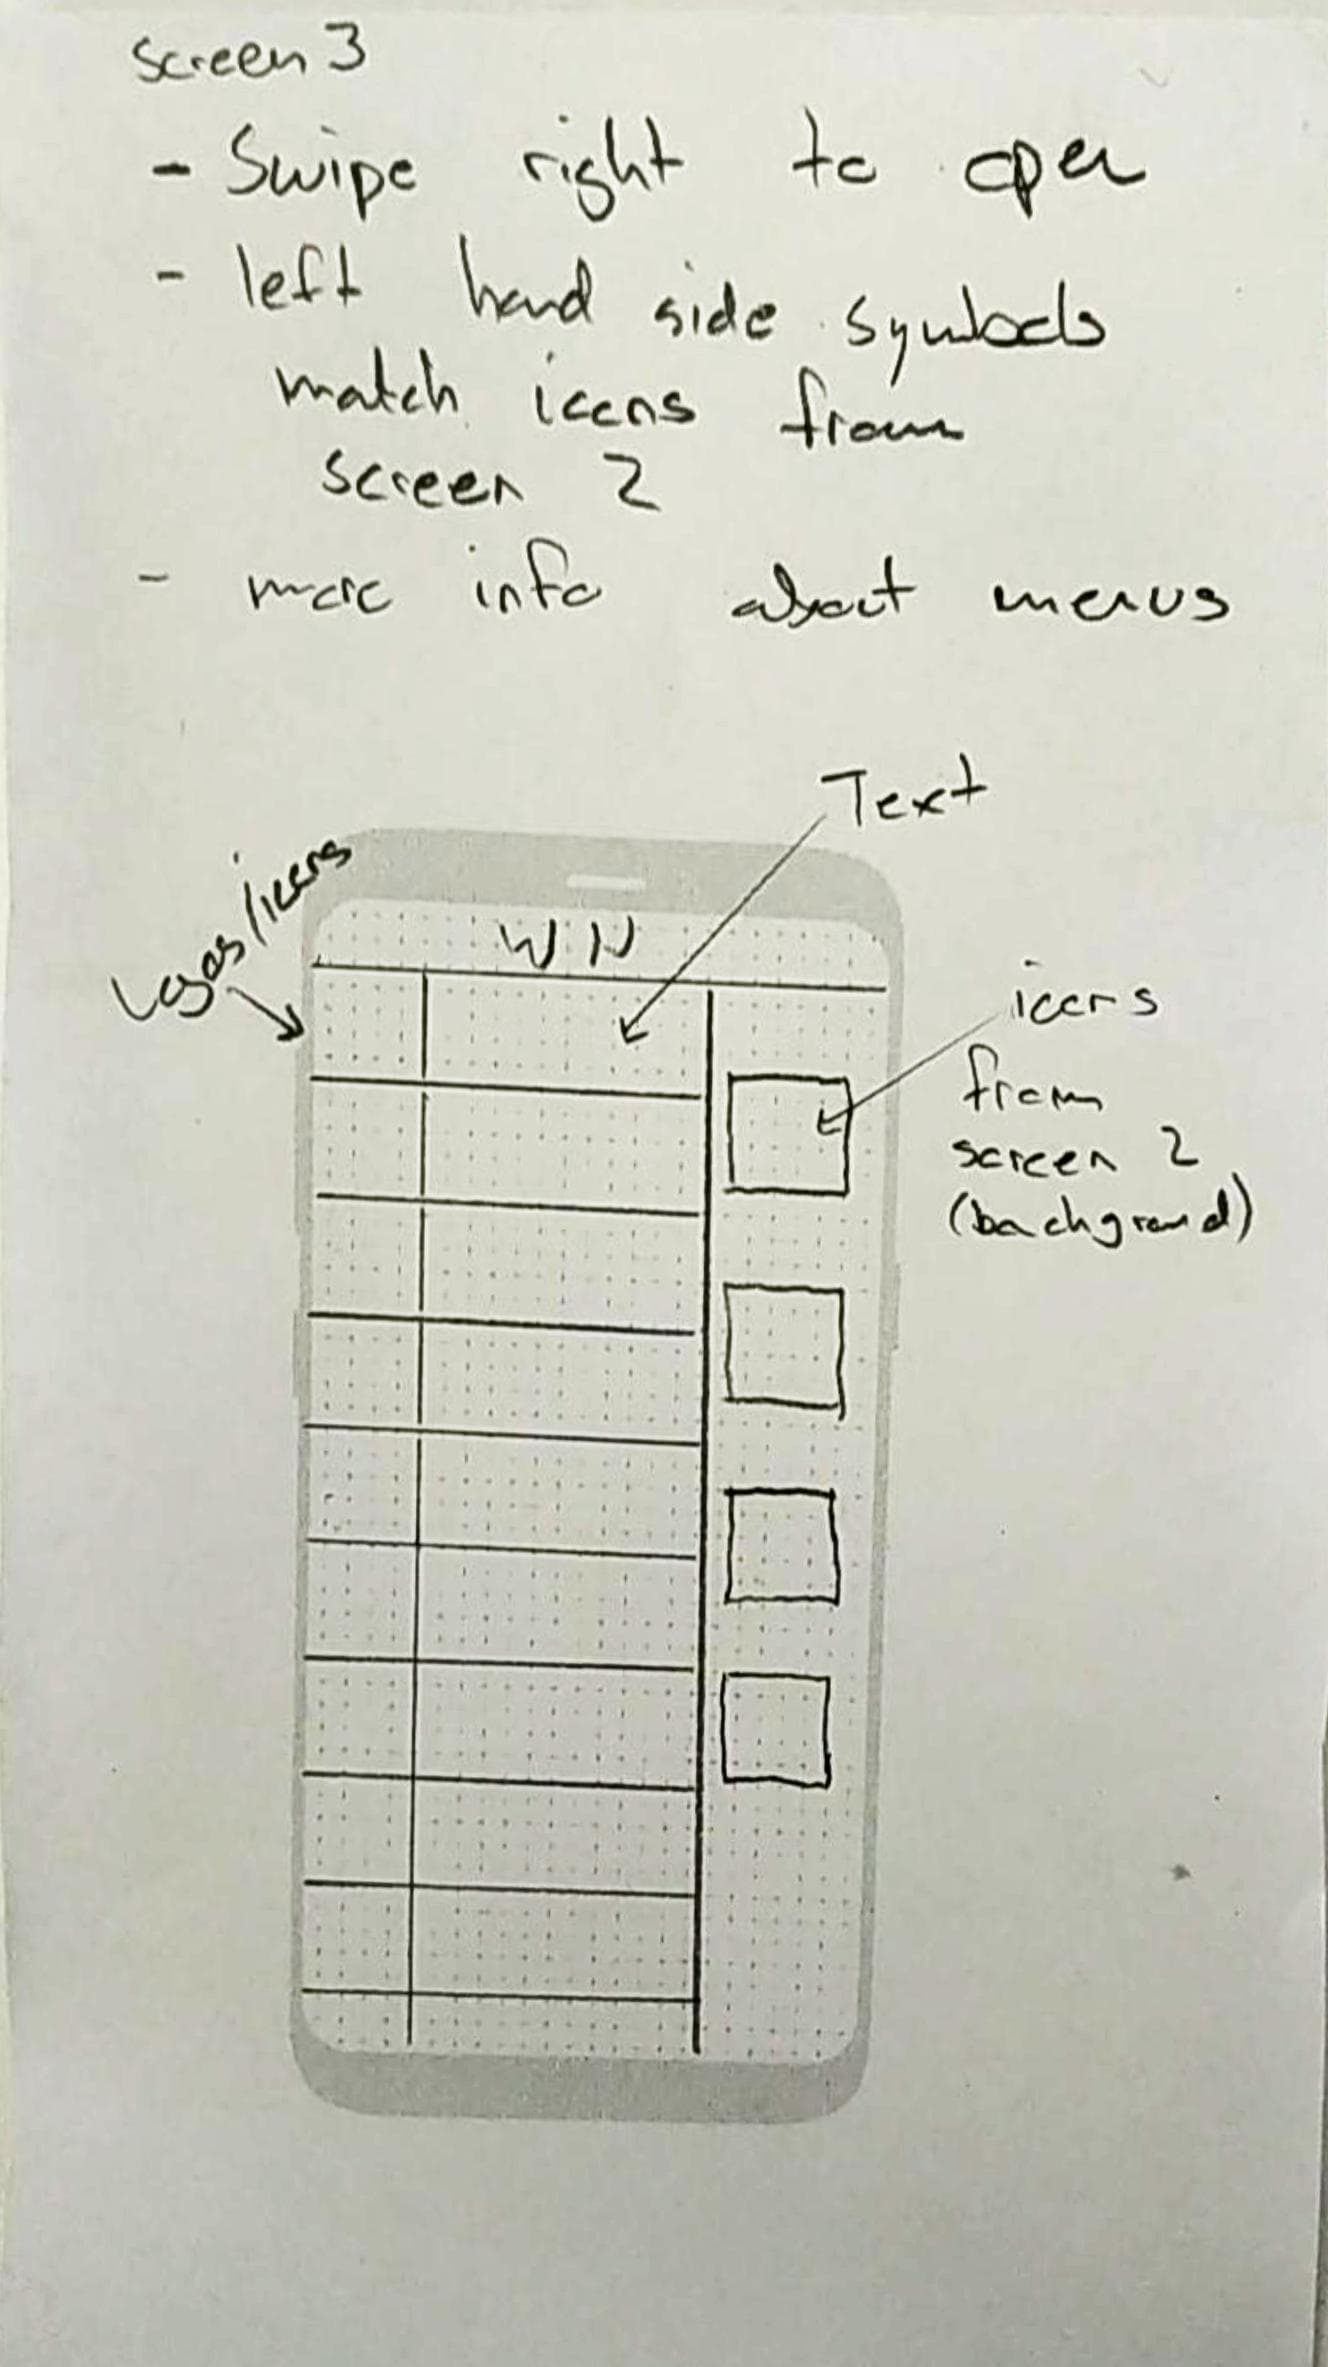 screen 3
- Swipe right to open
- left hand side symbols
match icons from
screen 2
- more info about menus
Text
Logos/icons
WN
icons
from
screen 2
(background)